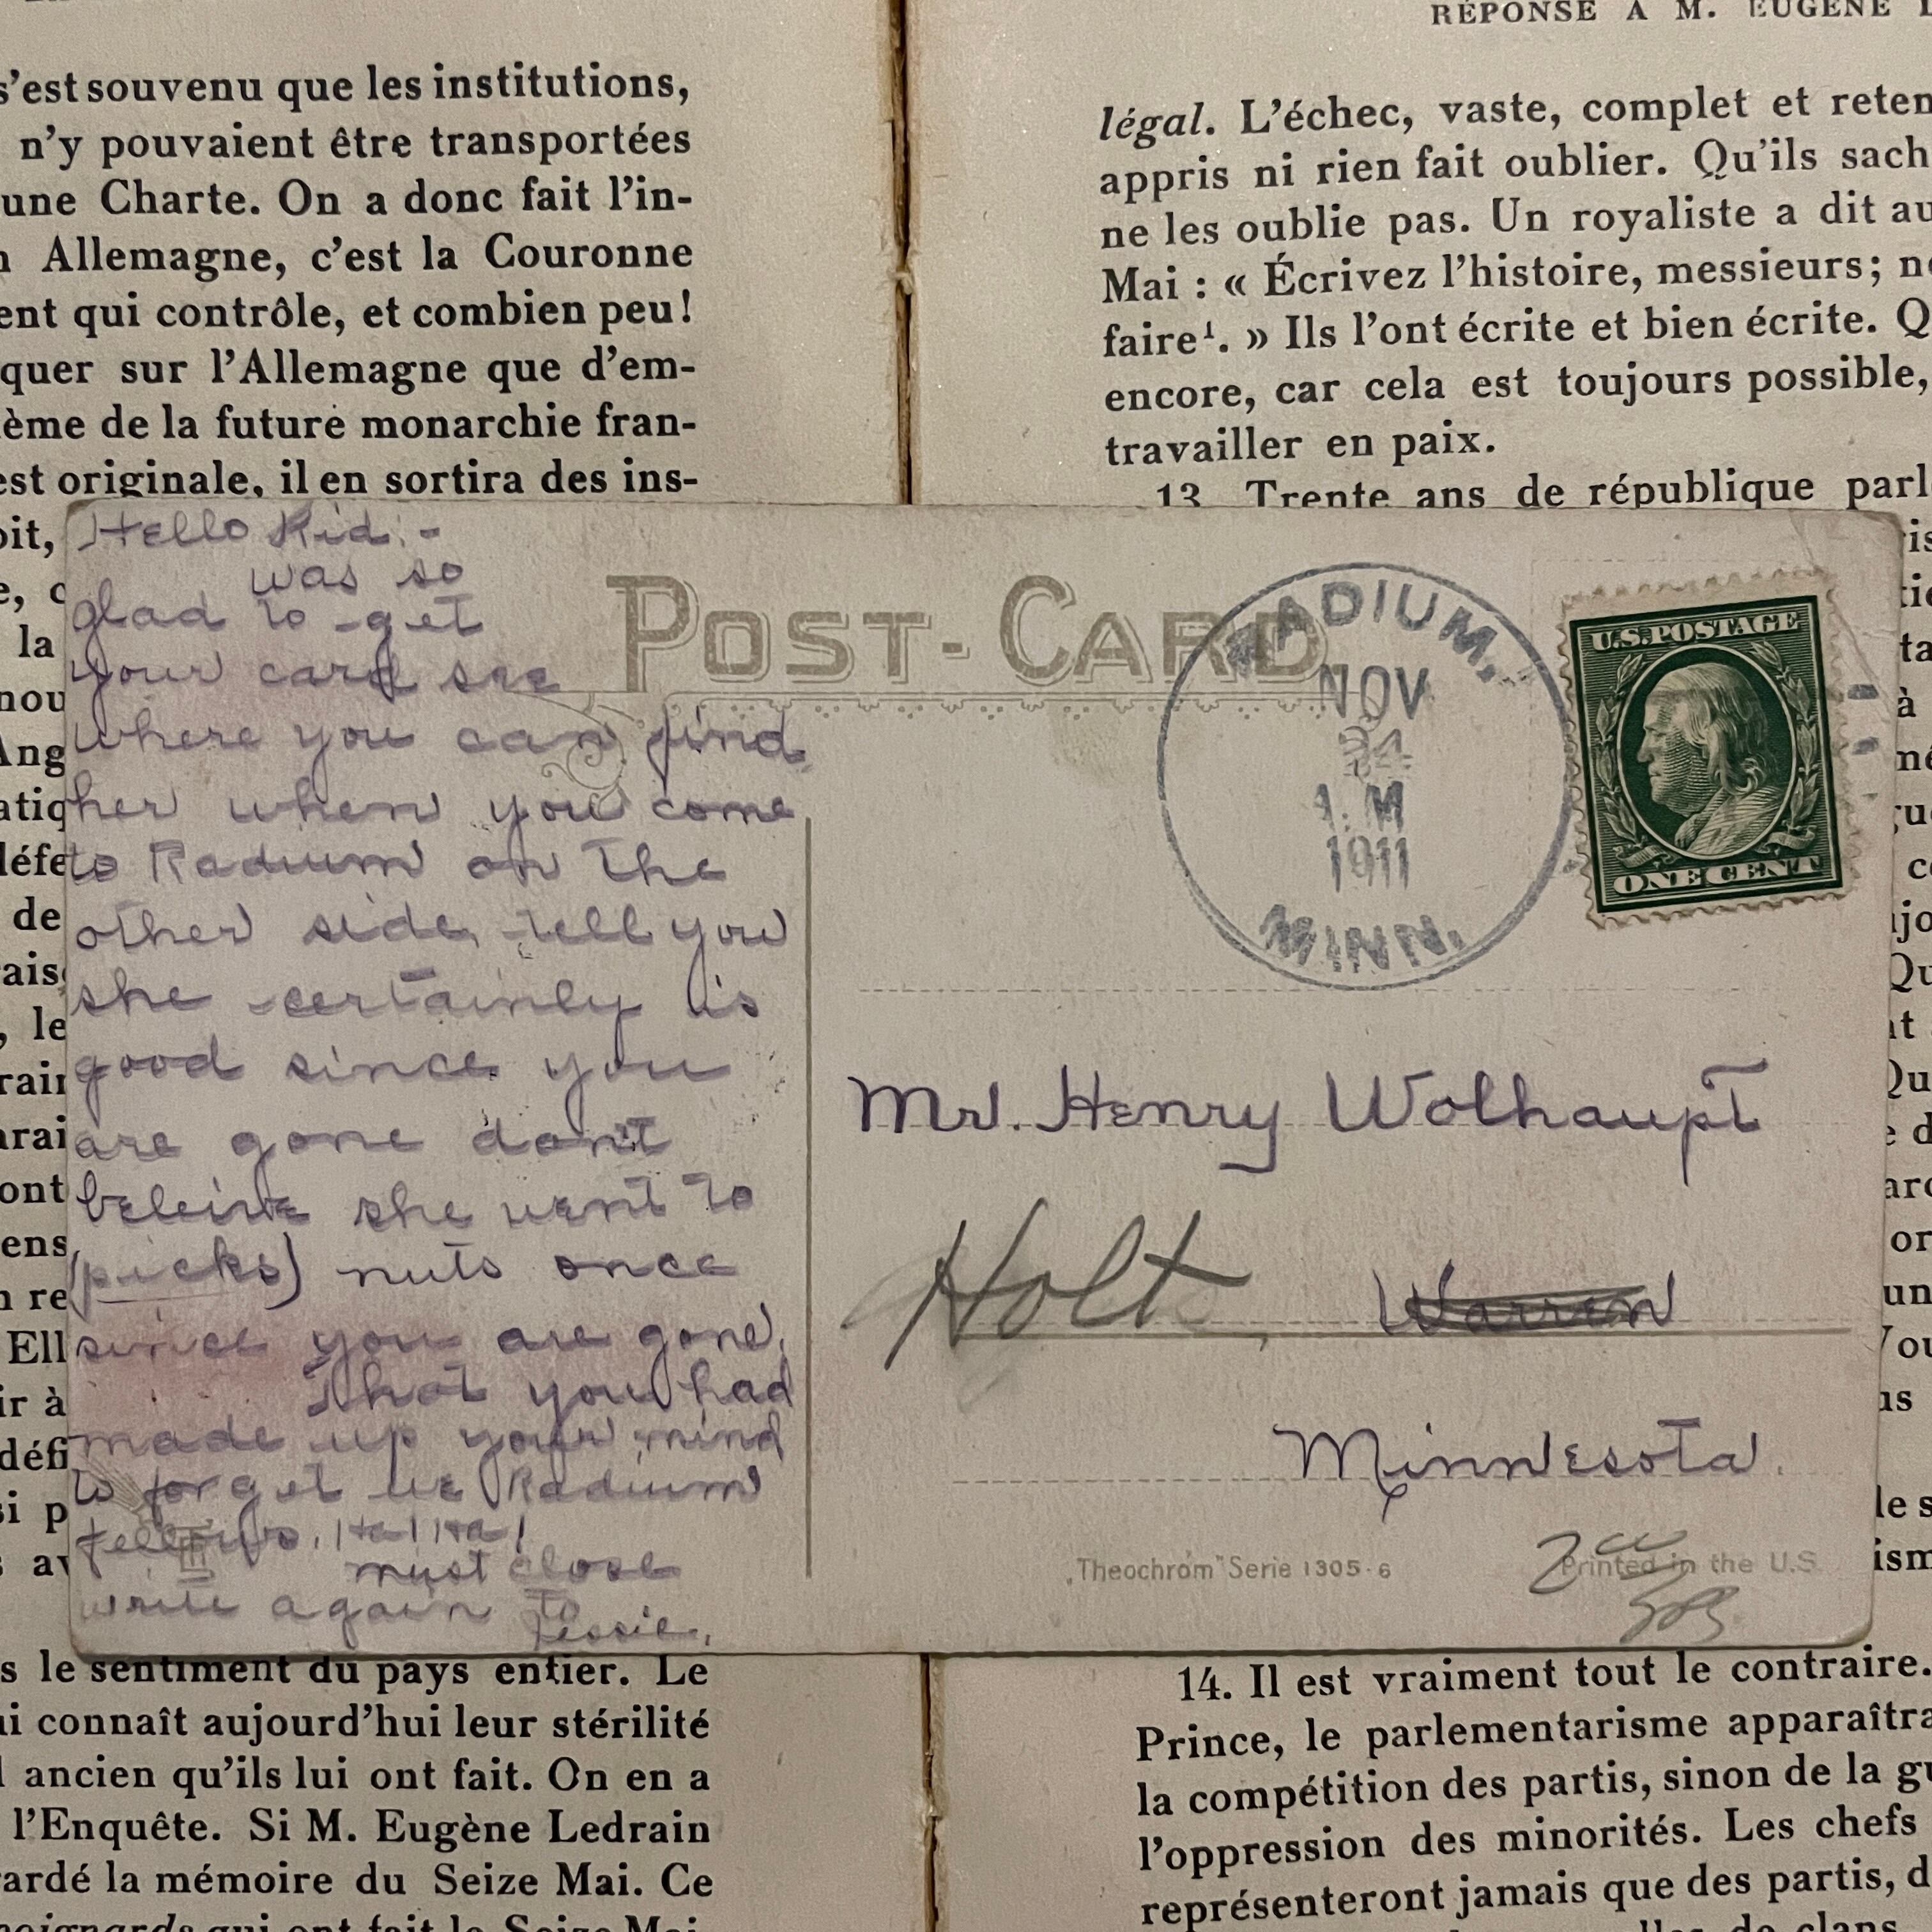 RÉPONSE A M. EUGÈNE
s'est souvenu que les institutions,
n'y pouvaient être transportées
une Charte. On a donc fait l'in-
Allemagne, c'est la Couronne
ent qui contrôle, et combien peu!
quer sur l'Allemagne que d'em-
ème de la future monarchie fran-
est originale, il en sortira des ins-
oit,
la
nou
Ang
atiq
défe
de
rais
, le
rain
arai
ont
ens
n re
Ell
ir à
défi
si p
s av
s le sentiment du pays entier. Le
ui connaît aujourd'hui leur stérilité
l ancien qu'ils lui ont fait. On en a
l'Enquête. Si M. Eugène Ledrain
ardé la mémoire du Seize Mai. Ce
qui ont fait le Seize Mai
légal. L'échec, vaste, complet et reten
appris ni rien fait oublier. Qu'ils sach
ne les oublie pas. Un royaliste a dit au
Mai : « Écrivez l'histoire, messieurs; n
faire¹. » Ils l'ont écrite et bien écrite. Q
encore, car cela est toujours possible,
travailler en paix.
13. Trente ans de république parl
Hello Kid:-
was so
glad to get
your card see
where you can find
her when you come
to Radium on the
other side, tell you
she certainly is
good since you
are gone don't
beleive she went to
(picks) nuts once
since you are gone,
that you had
made up your mind
to forget we Radium
fellows, Ha! Ha!
must close
write again to
Jessie.
POST-CARD
RADIUM,
NOV
24
1911
MINN.
U.S. POSTAGE
ONE CENT
Mr. Henry Wolhaupt
Holt, Warren
Minnesota.
„Theochrom" Serie 1305-6
Printed in the U.S.
14. Il est vraiment tout le contraire.
Prince, le parlementarisme apparaîtra
la compétition des partis, sinon de la gu
l'oppression des minorités. Les chefs
représenteront jamais que des partis, d
de clans